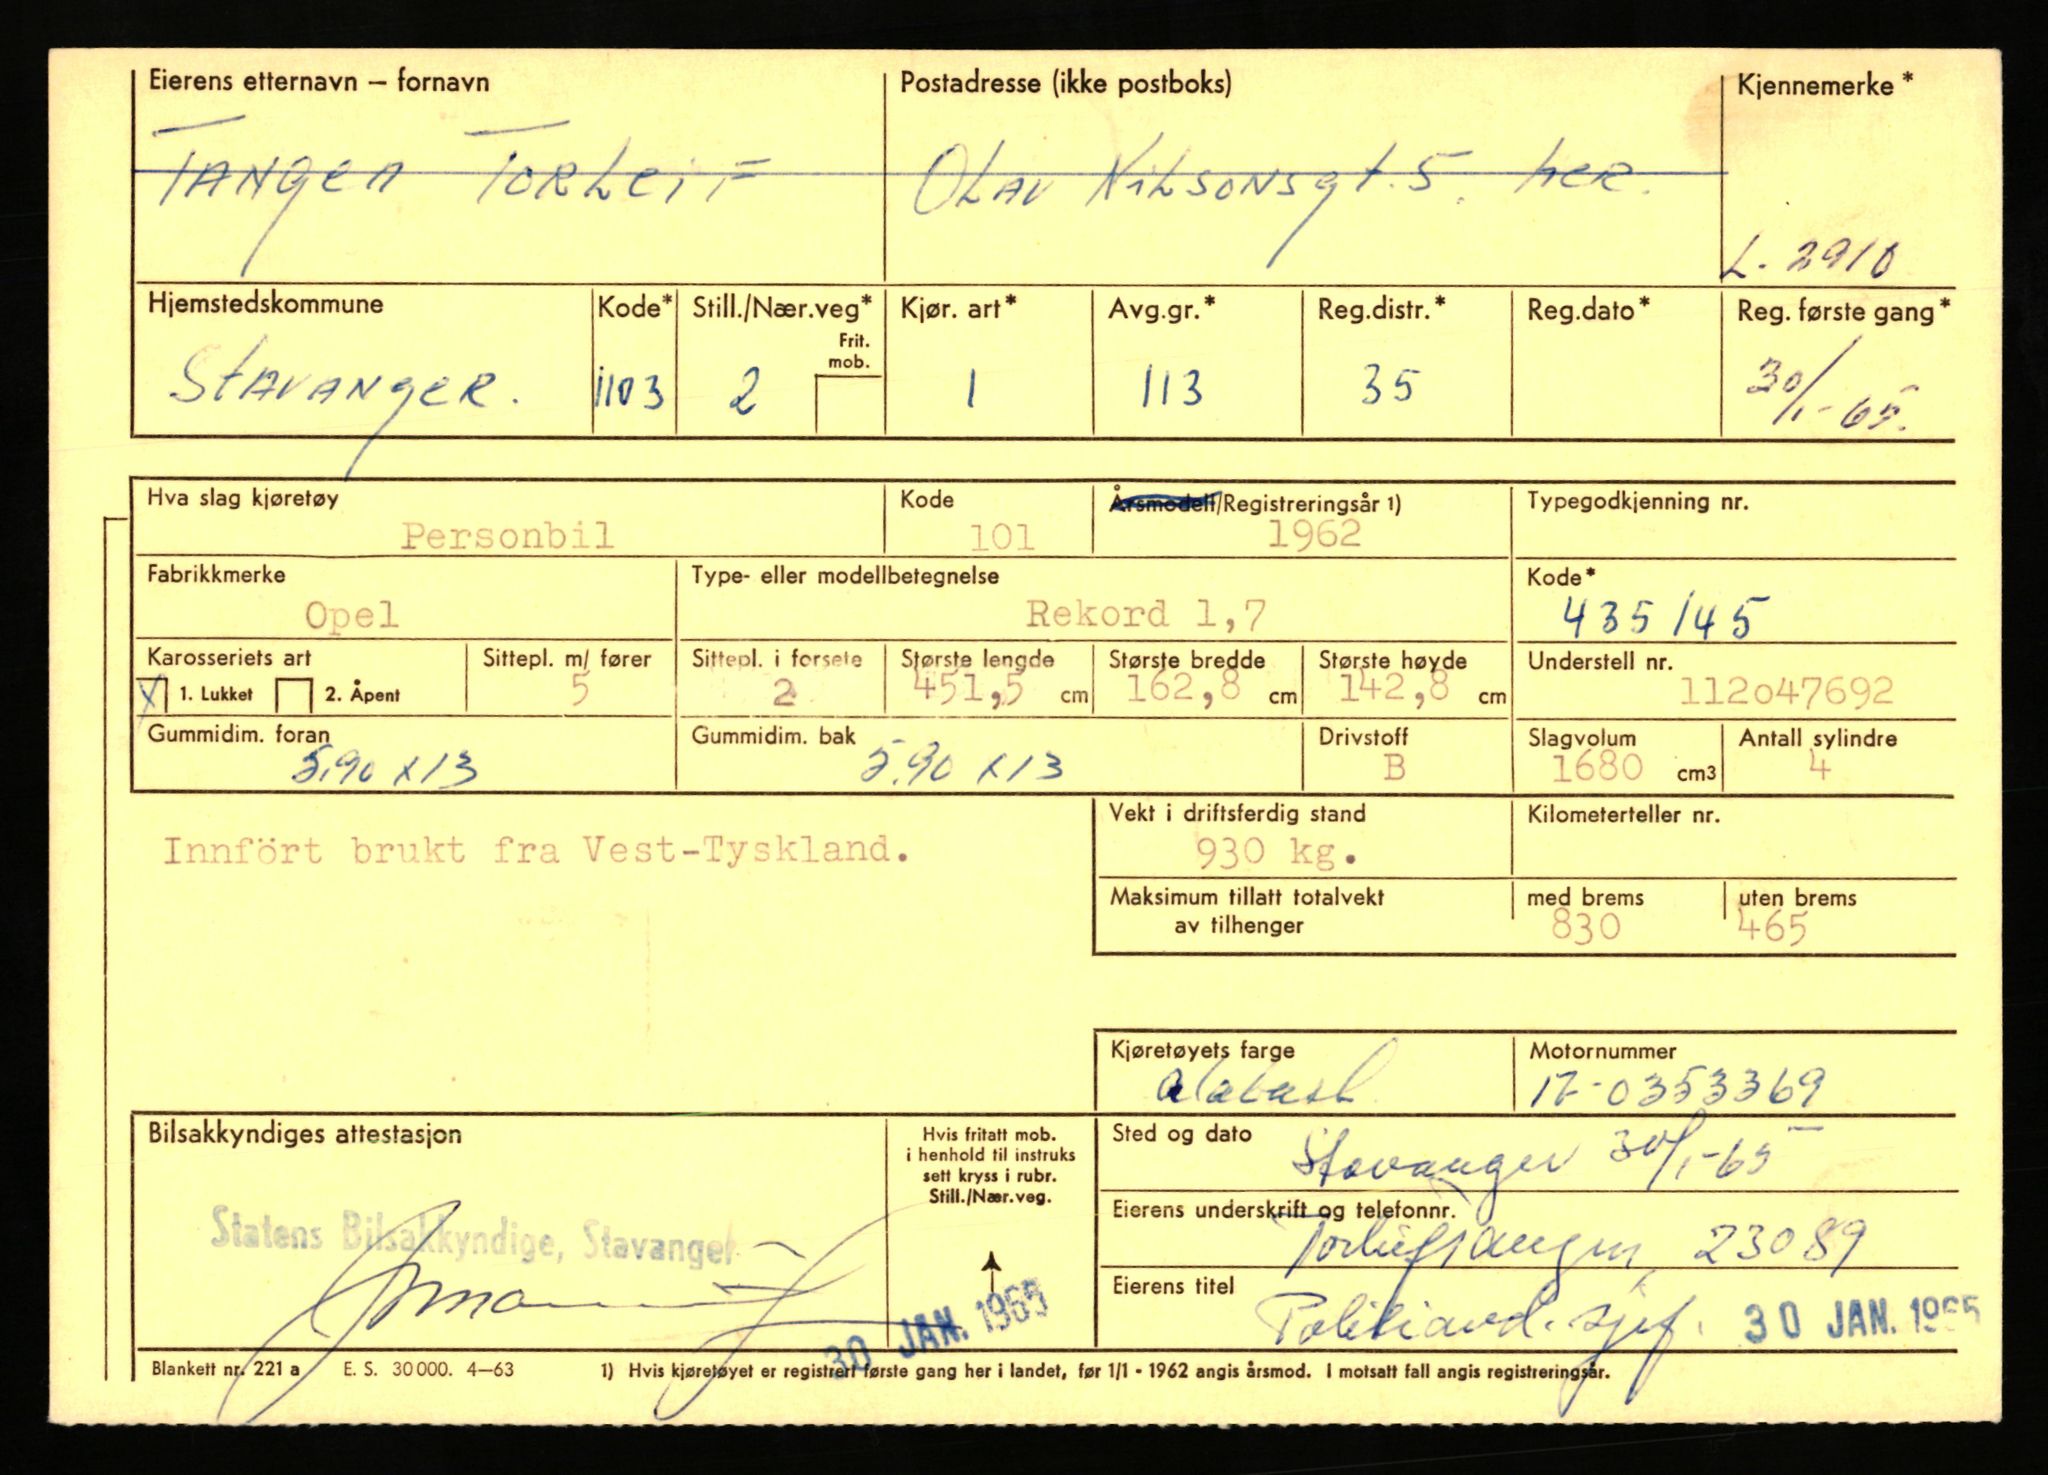 Eierens etternavn – fornavn Postadresse (ikke postboks) Kjennemerke*
TANGEN TORLEIF OLAV NILSONSgt. 5. heR.
L. 2910
Hjemstedskommune Kode* Still./Nær.veg* Kjør. art* Avg.gr.* Reg.distr.* Reg.dato* Reg. første gang*
Frit. mob.
STAVANGER. 1103 2 1 113 35 30/1-65.
Hva slag kjøretøy Kode Årsmodell/Registreringsår 1) Typegodkjenning nr.
Personbil 101 1962
Fabrikkmerke Type- eller modellbetegnelse Kode*
Opel Rekord 1,7 435145
Karosseriets art Sittepl. m/ fører Sittepl. i forsete Største lengde Største bredde Største høyde Understell nr.
X 1. Lukket 2. Åpent 5 2 451,5 cm 162,8 cm 142,8 cm 112047692
Gummidim. foran Gummidim. bak Drivstoff Slagvolum Antall sylindre
5.90 x 13 5.90 x 13 B 1680 cm3 4
Vekt i driftsferdig stand Kilometerteller nr.
Innfört brukt fra Vest-Tyskland. 930 kg.
Maksimum tillatt totalvekt med brems uten brems
av tilhenger 830 465
Kjøretøyets farge Motornummer
17-0353369
Bilsakkyndiges attestasjon Hvis fritatt mob.
i henhold til instruks
sett kryss i rubr.
Still./Nær.veg.
Sted og dato Stavanger 30/1-65
Statens Bilsakkyndige, Stavanger
Eierens underskrift og telefonnr.
Torleif Tangen, 23089
Eierens titel
Politiavd. sjef. 30 JAN. 1965
30 JAN. 1965
Blankett nr. 221 a E. S. 30 000. 4—63 1) Hvis kjøretøyet er registrert første gang her i landet, før 1/1 - 1962 angis årsmod. I motsatt fall angis registreringsår.